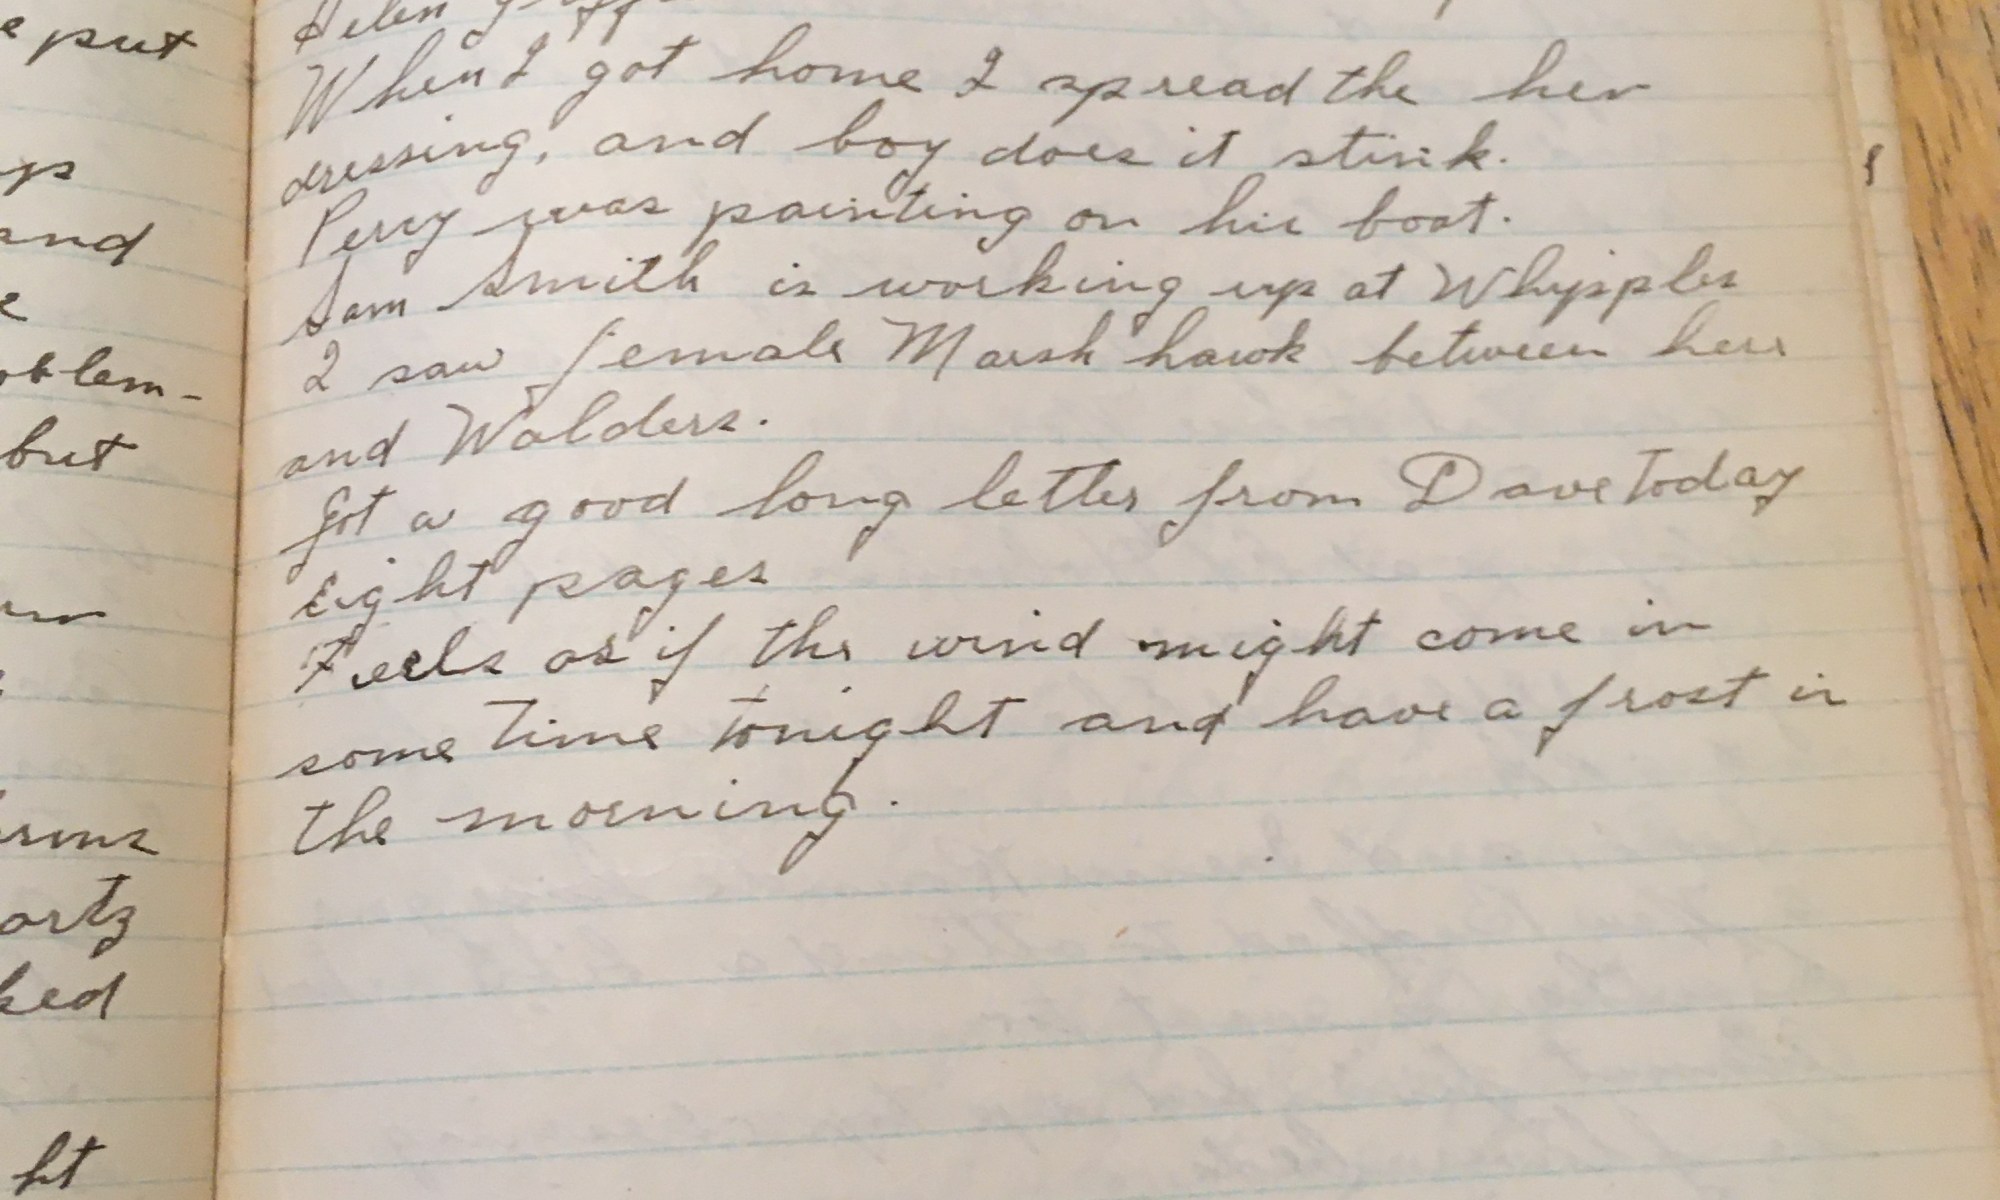 e put
up
and
oblem-
but
arms
artz
ked
ht
Helen
When I got home I spread the hen
dressing, and boy does it stink.
Perry was painting on his boat.
Sam Smith is working up at Whipples
I saw female Marsh hawk between here
and Walders.
Got a good long letter from Dave Today
Eight pages
Feels as if the wind might come in
some Time tonight and have a frost in
the morning.